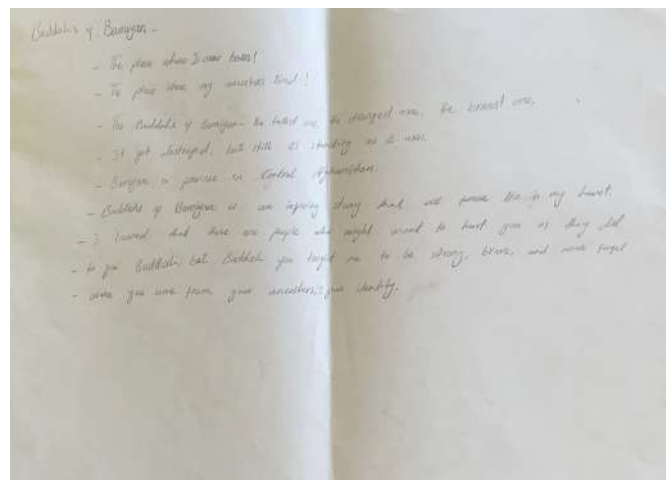 Buddahs of Bamyan -
- The place where I was born!
- The place where my ancestors lived!
- The Buddahs of Bamyan - the tallest one, the strongest one, the bravest one,
- It got destroyed, but still is standing as it was.
- Bamyan is province in Central Afghanistan.
- Buddahs of Bamyan is an inspiring story that will in my heart.
- I learned that there are people who might want to hurt you as they did
- to you Buddah but Buddah you taught me to be strong, brave, and never forget
- where you come from, your ancestors, your identity.